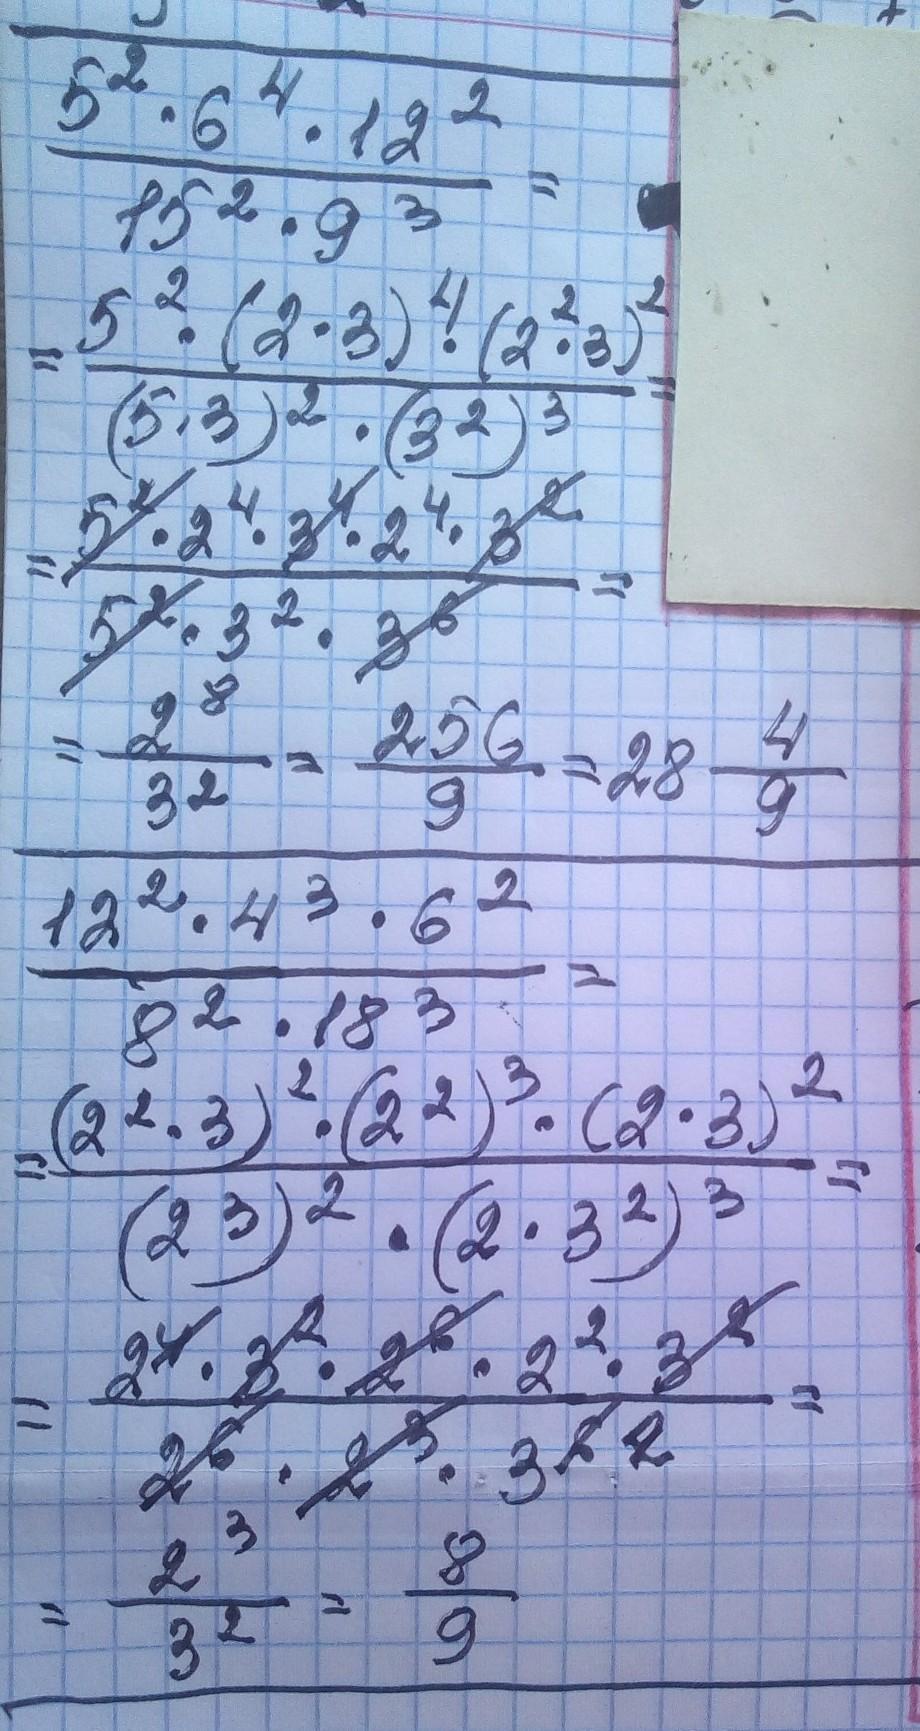 5² · 6⁴ · 12² / 15² · 9³ =
= 5² · (2·3)⁴ · (2²·3)² / (5·3)² · (3²)³ =
= 5² · 2⁴ · 3⁴ · 2⁴ · 3² / 5² · 3² · 3⁶ =
= 2⁸ / 3² = 256 / 9 = 28 4/9
12² · 4³ · 6² / 8² · 18³ =
= (2²·3)² · (2²)³ · (2·3)² / (2³)² · (2·3²)³ =
= 2⁴ · 3² · 2⁶ · 2² · 3² / 2⁶ · 2³ · 3⁶ 2 =
= 2³ / 3² = 8 / 9